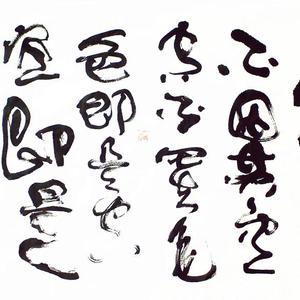 不異空
空不異色
色即是空
空即是